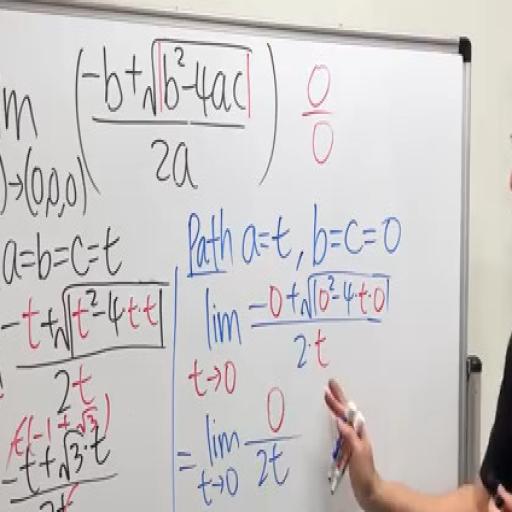 m (-b+√|b²-4ac| / 2a) 0/0
)→(0,0,0)
a=b=c=t
-t+√|t²-4·t·t| / 2t
t(-1+√3)
-t+√3·t / 2t
Path a=t, b=c=0
lim t→0 -0+√|0²-4·t·0| / 2·t
= lim t→0 0 / 2t